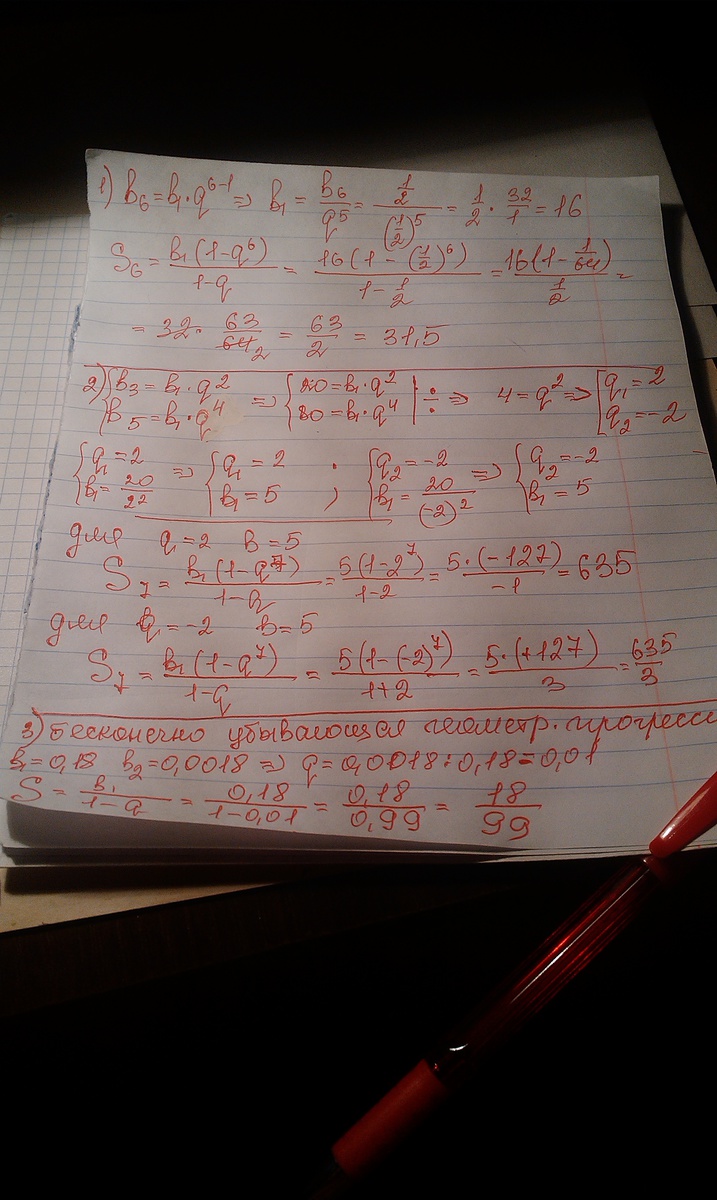 1) b₆ = b₁ · q⁶⁻¹ ⇒ b₁ = b₆/q⁵ = (1/2)/(1/2)⁵ = 1/2 · 32/1 = 16
S₆ = b₁(1-q⁶)/(1-q) = 16(1-(1/2)⁶)/(1-1/2) = 16(1-1/64)/(1/2) =
= 32 · 63/64 ₂ = 63/2 = 31,5
2) { b₃ = b₁ · q² ; b₅ = b₁ · q⁴ ⇒ { 20 = b₁ · q² ; 80 = b₁ · q⁴ | ÷ ⇒ 4 = q² ⇒ [ q₁ = 2 ; q₂ = -2
{ q₁ = 2 ; b₁ = 20/2² ⇒ { q₁ = 2 ; b₁ = 5 ; { q₂ = -2 ; b₁ = 20/(-2)² ⇒ { q₂ = -2 ; b₁ = 5
для q = 2 b = 5
S₇ = b₁(1-q⁷)/(1-q) = 5(1-2⁷)/(1-2) = 5·(-127)/-1 = 635
для q = -2 b = 5
S₇ = b₁(1-q⁷)/(1-q) = 5(1-(-2)⁷)/(1+2) = 5·(+127)/3 = 635/3
3) бесконечно убывающая геометр. прогресси
b₁ = 0,18 b₂ = 0,0018 ⇒ q = 0,0018 : 0,18 = 0,01
S = b₁/(1-q) = 0,18/(1-0,01) = 0,18/0,99 = 18/99